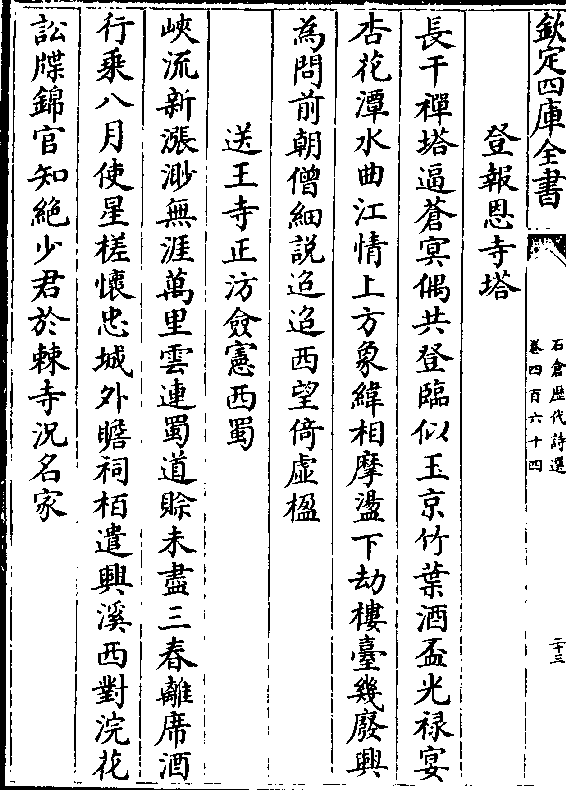 欽定四庫全書
石倉歴代詩選
卷四百六十四
二十三
登報恩寺塔
長干禪塔逼蒼冥偶共登臨似玉京竹葉酒盃光禄宴
杏花潭水曲江情上方象緯相摩盪下劫樓臺幾廢興
為問前朝僧細説迢迢西望倚虚楹
送王寺正汸僉憲西蜀
峽流新漲渺無涯萬里雲連蜀道賒未盡三春離席酒
行乗八月使星槎懷忠城外瞻祠栢遣興溪西對浣花
訟牒錦官知絶少君於棘寺況名家